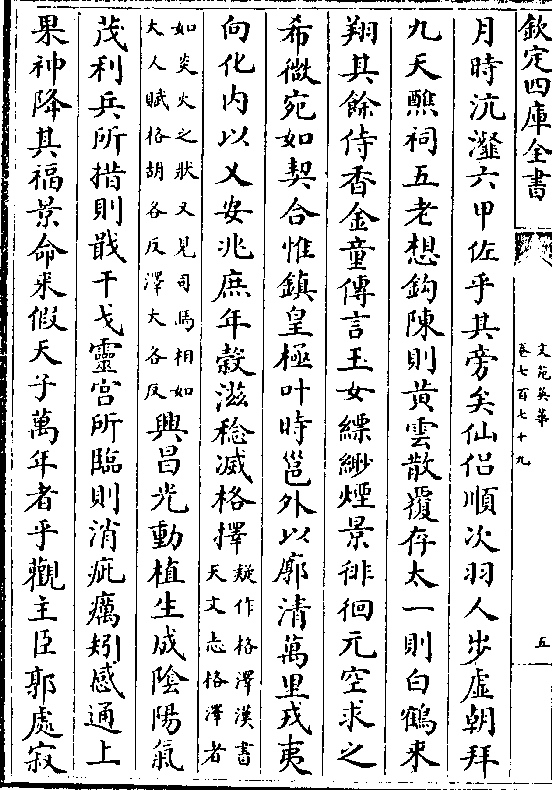 欽定四庫全書
文苑英華
卷七百七十九
五
月時沆瀣六甲佐乎其旁矣仙侣順次羽人步虛朝拜
九天醮祠五老想鈎陳則黄雲散覆存太一則白鶴來
翔其餘侍香金童傳言玉女縹緲煙景徘徊元空求之
希微宛如契合惟鎮皇極叶時邕外以廓清萬里戎夷
向化内以乂安兆庶年穀滋稔滅格擇
疑作格澤漢書
天文志格澤者
如炎火之狀又見司馬相如
大人賦格胡各反澤大各反
興昌光動植生成隂陽氣
茂利兵所措則戢干戈靈宫所臨則消疵癘矧感通上
果神降其福景命来假天子萬年者乎觀主臣郭處寂